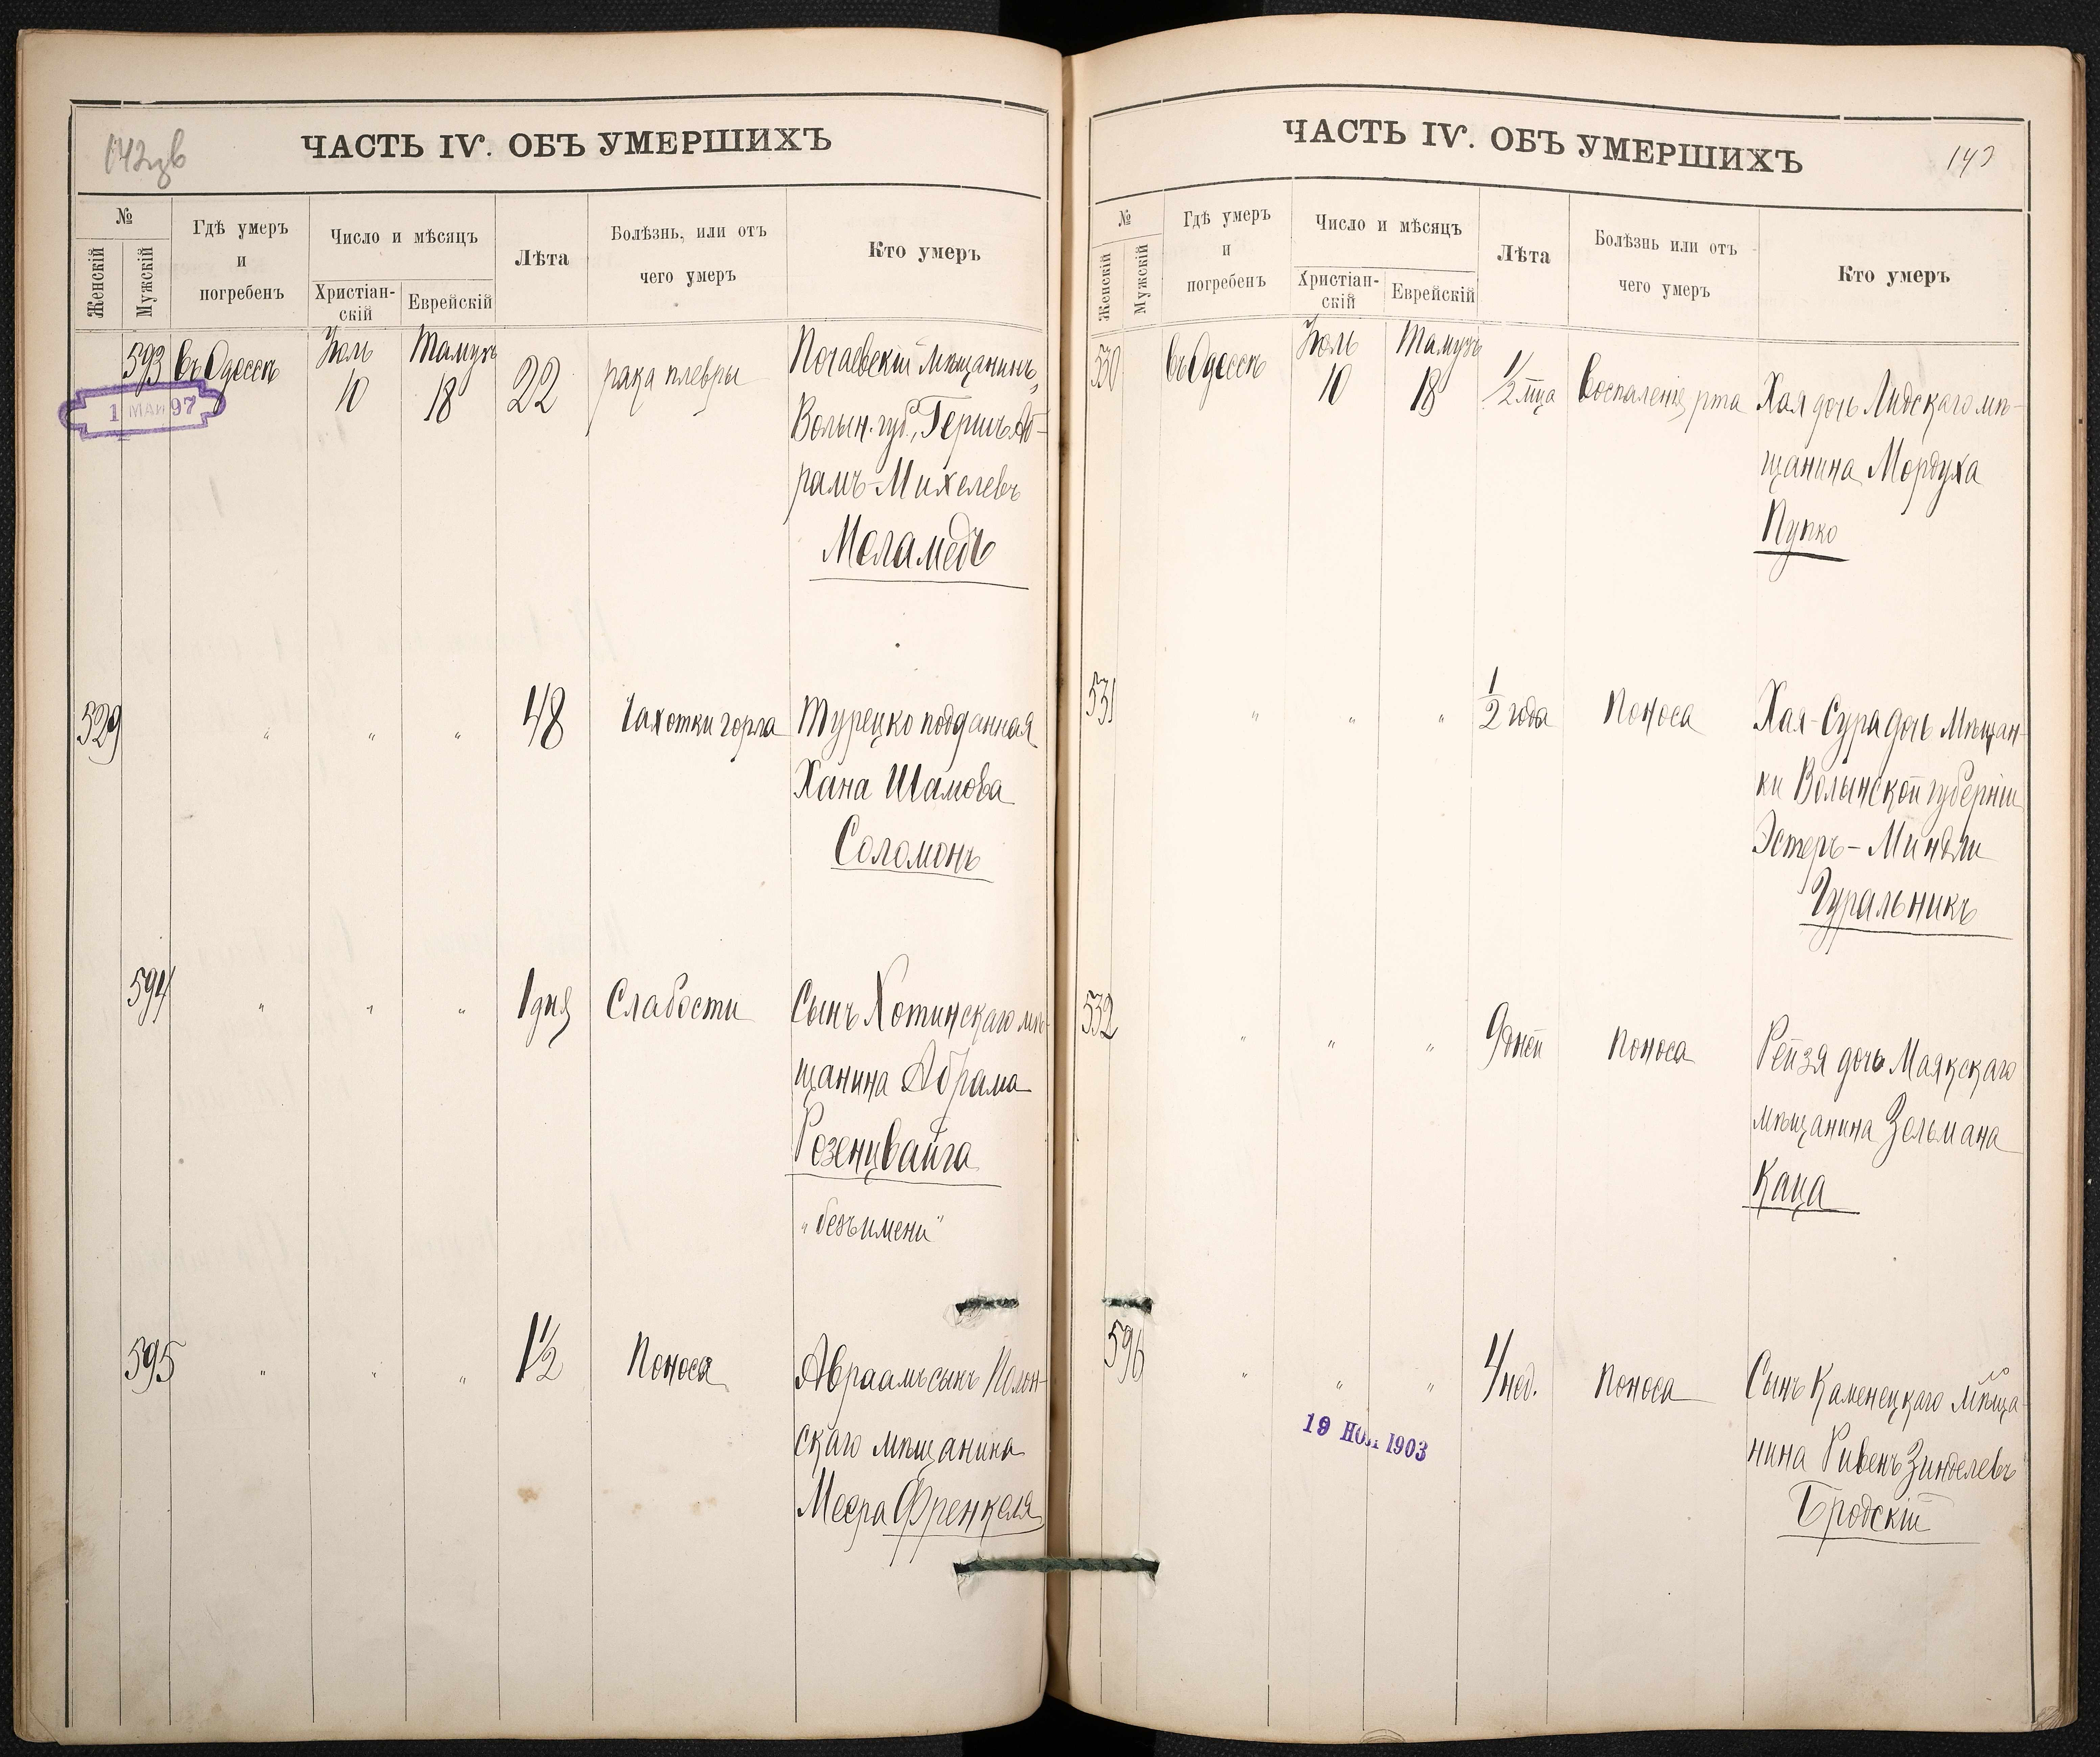 142 об
ЧАСТЬ IV. ОБЪ УМЕРШИХЪ
№
Женскій
Мужскій
Гдѣ умеръ
и
погребенъ
Число и мѣсяцъ
Христіан-
скій
Еврейскій
Лѣта
Болѣзнь, или отъ
чего умеръ
Кто умеръ
593
въ Одессѣ
Іюль
10
Тамузъ
18
22
рака плевры
Почаевскій Мѣщанинъ,
Волын. губ., Гершъ Аб-
рамъ-Михелевъ
Меламедъ
1 МАЙ 97
529
"
"
"
48
Чахотки горла
Турецко подданная
Хана Шамова
Соломонъ
594
"
"
"
1 дня
Слабости
Сынъ Хотинскаго мѣ-
щанина Абрама
Розенцвайга
"безъ имени"
595
"
"
"
1 1/2
Поноса
Авраамъ сынъ Полон-
скаго мѣщанина
Меера Френкеля
ЧАСТЬ IV. ОБЪ УМЕРШИХЪ
143
№
Женскій
Мужскій
Гдѣ умеръ
и
погребенъ
Число и мѣсяцъ
Христіан-
скій
Еврейскій
Лѣта
Болѣзнь или отъ
чего умеръ
Кто умеръ
530
въ Одессѣ
Іюль
10
Тамузъ
18
1/2 мца
Воспаленія рта
Хая дочь Лидскаго мѣ-
щанина Мордуха
Пупко
531
"
"
"
1/2 года
Поноса
Хая-Сура дочь Мѣщан-
ки Волынской губерніи
Эстеръ-Миндли
Гуральникъ
532
"
"
"
9 дней
Поноса
Рейзя дочь Маякскаго
мѣщанина Зельмана
Каца
596
"
"
"
4 нед.
Поноса
Сынъ Каменецкаго мѣща-
нина Ривенъ Зинделевъ
Бродскій
19 НОЯ 1903